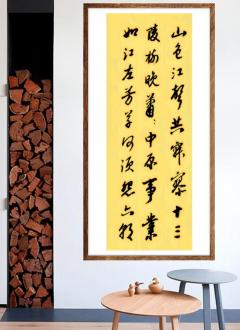 山色江聲共寂寥十三
陵樹晚蕭〻中原事業
如江左芳草何須怨六朝